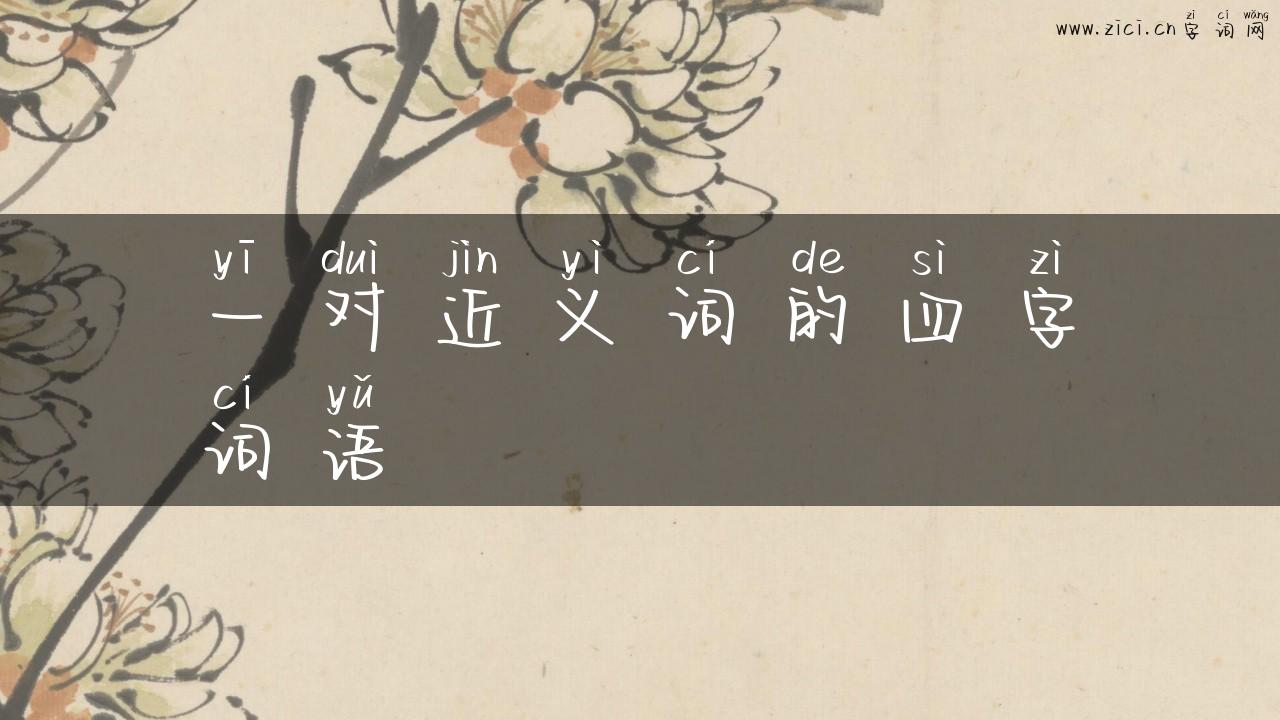 zì cí wǎng
www.zici.cn 字词网
yī duì jìn yì cí de sì zì
一对近义词的四字
cí yǔ
词语